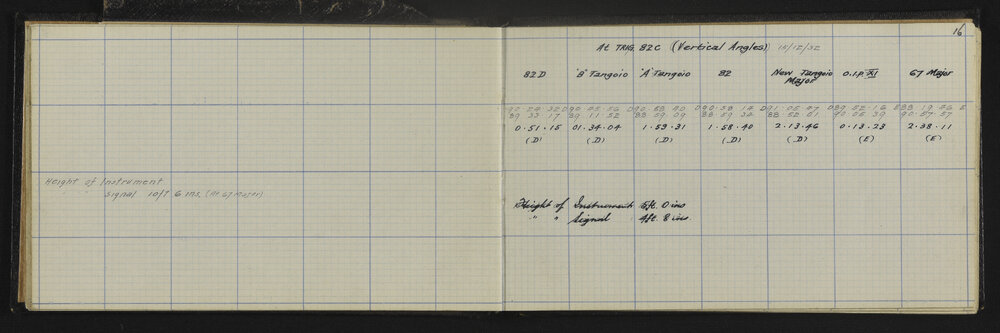 16
At TRIG. 82C (Vertical Angles) 15/12/32
82D "B" Tangoio "A" Tangoio 82 New Tangoio Major O.I.P. XI 67 Major
90 24 32 D 90 45 56 D 90 58 40 D 90 58 14 D 91 05 47 D 89 52 16 E 88 19 46 E
89 33 17 89 11 52 88 59 09 88 59 34 88 52 01 90 05 39 90 57 57
0·51·15 01·34·04 1·59·31 1·58·40 2·13·46 0·13·23 2·38·11
(D) (D) (D) (D) (D) (E) (E)
Height of Instrument
" " Signal 10ft 6 ins. (At 67 Major)
Height of Instrument 5ft. 0 ins
" " Signal 4ft 8 ins